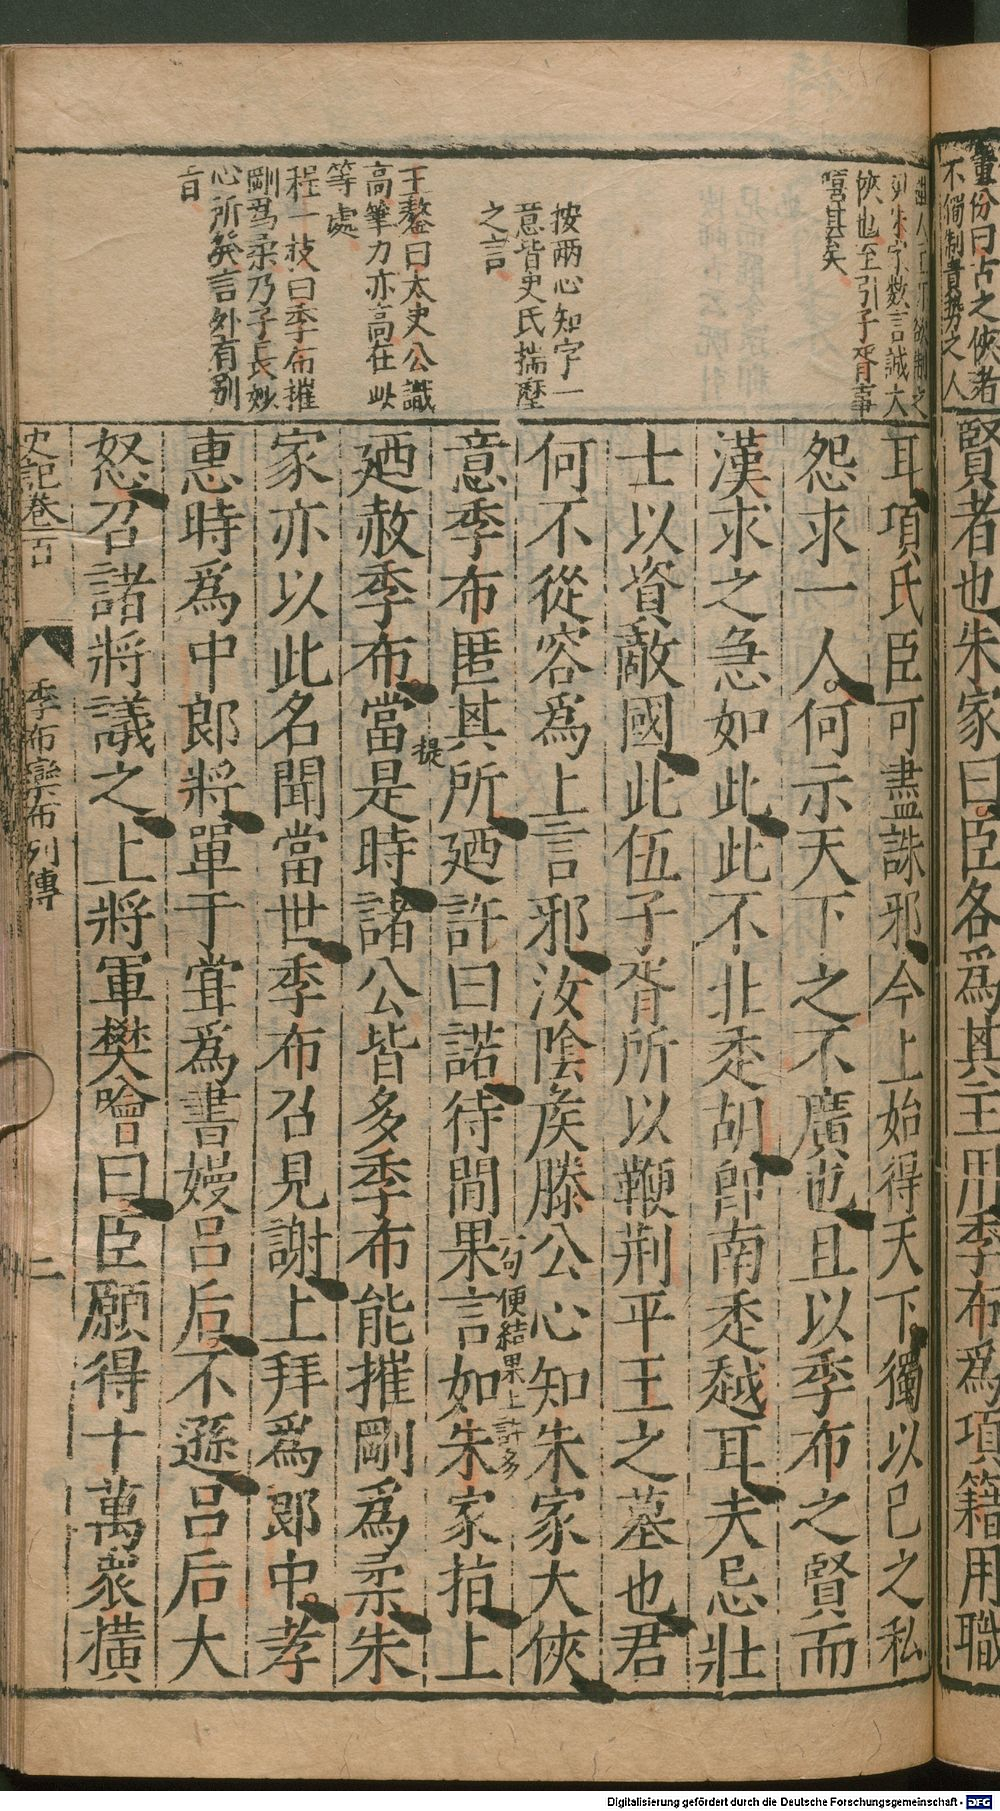 董份曰古之俠者
不獨制貴勢之人
賢者也朱家曰臣各爲其主用季布爲項籍用職
列朱家數言誠大
俠也至引子胥事
嘻甚矣
耳項氏臣可盡誅邪今上始得天下獨以己之私
怨求一人何示天下之不廣也且以季布之賢而
漢求之急如此此不北走胡卽南走越耳夫忌壯
士以資敵國此伍子胥所以鞭荆平王之墓也君
按兩心知字一
意皆史氏揣歷
之言
何不從容爲上言邪汝陰侯滕公心知朱家大俠
意季布匿其所廼許曰諾待閒果言如朱家指上
一句便結果上許多
王鏊曰太史公識
高筆力亦高在此
等處
廼赦季布當是時諸公皆多季布能摧剛爲柔朱
提
程一枝曰季布摧
剛爲柔乃子長妙
心所發言外有别
旨
家亦以此名聞當世季布召見謝上拜爲郎中孝
惠時爲中郎將單于甞爲書嫚呂后不遜呂后大
怒召諸將議之上將軍樊噲曰臣願得十萬衆橫
史記卷一百
季布欒布列傳
二
Digitalisierung gefördert durch die Deutsche Forschungsgemeinschaft - DFG